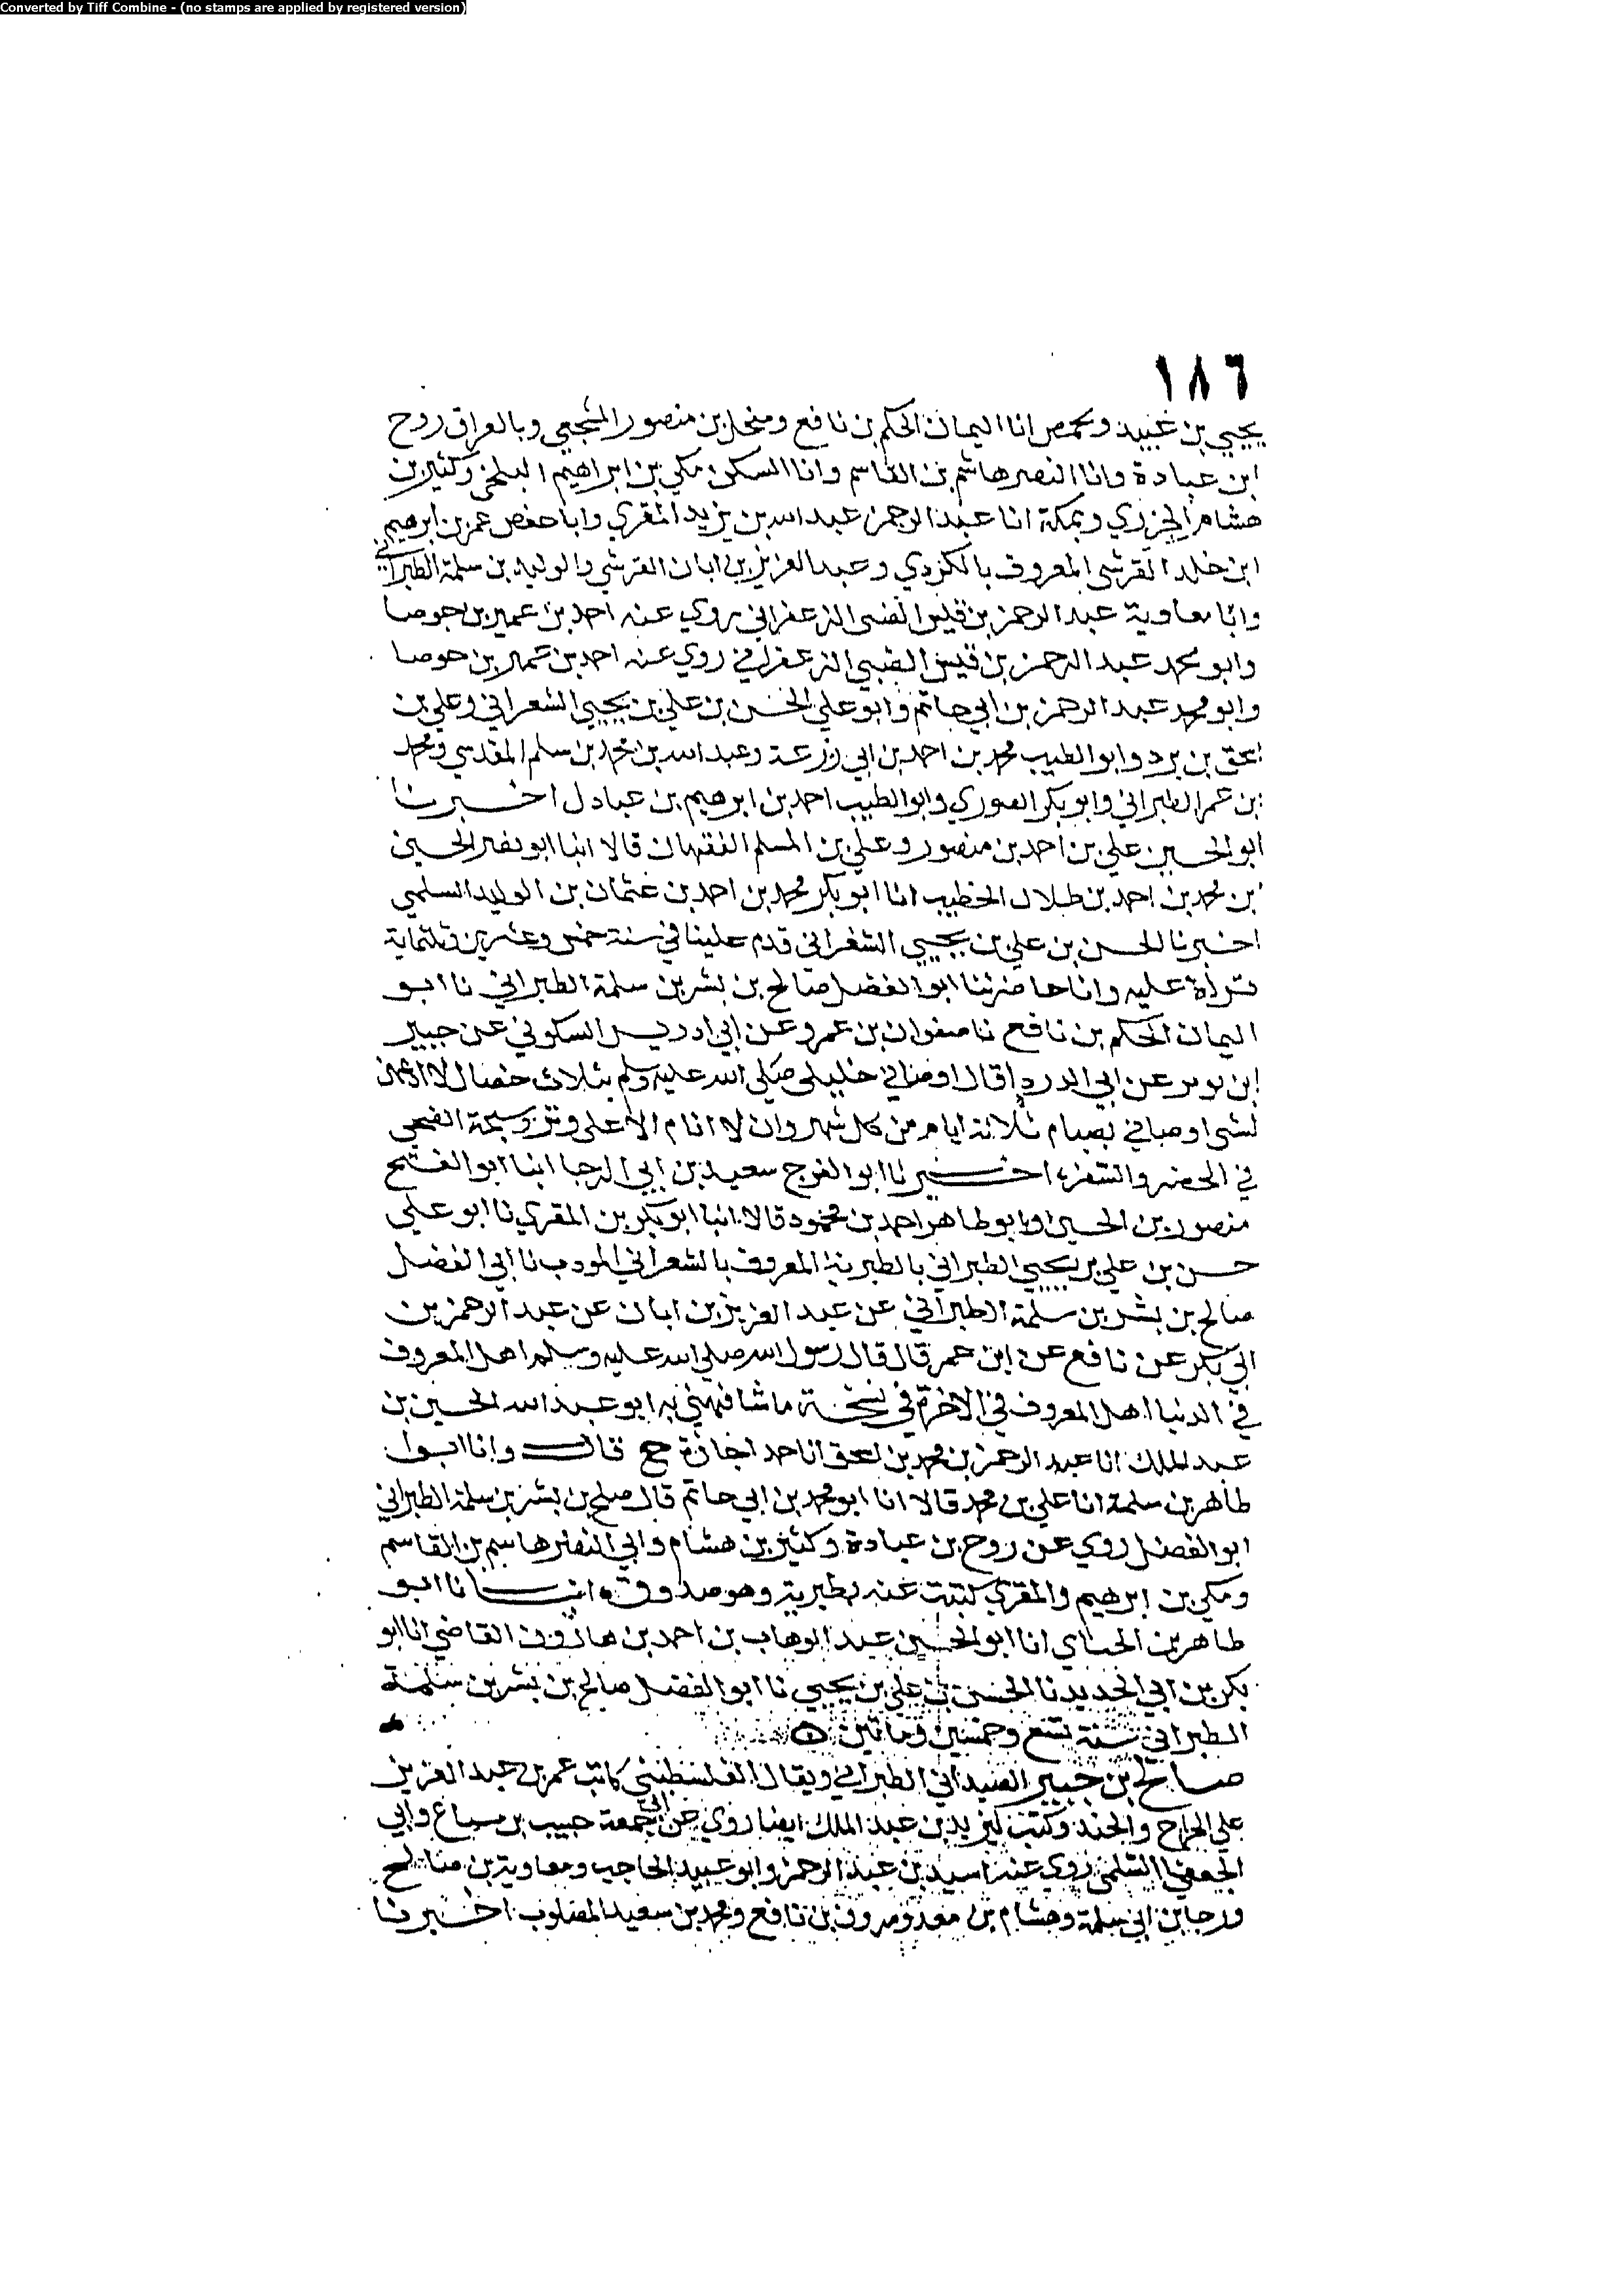 Converted by Tiff Combine - (no stamps are applied by registered version)
١٨٦
يحيى بن عبيد وبحمص انا اليمان الحكم بن نافع ومنخل بن منصور المشجعي وبالعراق روح
ابن عبادة وانا النضر هاشم بن القاسم وانا السكن مكي بن ابراهيم البلخي وكثير بن
هشام الجزري وبمكة انا عبد الرحمن عبد الله بن يزيد المقري وابا حفص عمر بن ابرهيم
ابن خلد القرشي المعروف بالكردي وعبد العزيز بن ابان القرشي والوليد بن سلمة الطبراني
وابا معاوية عبد الرحمن بن قيس الضبي الزعفراني روي عنه احمد بن عمير بن جوصا
وابو محمد عبد الرحمن بن قيس الضبي الزعفراني روي عنه احمد بن عمير بن حوصا
وابو محمد عبد الرحمن بن ابي حاتم وابو علي الحسن بن علي بن يحيى الشعراني وعلي بن
اسحق بن برد وابو الطيب محمد بن احمد بن ابي زرعة وعبد الله بن محمد بن سلم المقدسي ومحمد
بن عمر الطبراني وابو بكر الصوري وابو الطيب احمد بن ابرهيم بن عبادل اخبرنا
ابو الحسين علي بن احمد بن منصور وعلي بن المسلم الفقيهان قالا انبا ابو نصر الحسين
بن محمد بن احمد بن طلاب الخطيب انا ابو بكر محمد بن احمد بن عثمان بن الوليد السلمي
اخبرنا الحسن بن علي بن يحيى الشعراني قدم علينا في سنة خمس وعشرين وثلثماية
قرأة عليه وانا حاضر نا ابو الفضل صالح بن بشر بن سلمة الطبراني نا ابو
اليمان الحكم بن نافع نا صفوان بن عمرو عن ابي ادريس السكوني عن جبير
ابن عن ابي الدردا قال اوصاني خليلي صلى الله عليه وسلم بثلاث خصال لا ادعهن
لشي اوصاني بصيام ثلاثة ايام من كل شهر وان لا انام الا على وتر وسبحة الضحى
في الحضر والسفر اخبرنا ابو الفرج سعيد بن ابي الرجا انبا ابو الفتح
منصور بن الحسين وابو طاهر احمد بن محمود قالا انبا ابو بكر بن المقري نا ابو علي
حسن بن علي بن يحيى الطبراني بالطبرية المعروف بالشعراني المودب نا ابي الفضل
صالح بن بشر بن سلمة الطبراني عن عبد العزيز بن ابان عن عبد الرحمن بن
ابي بكر عن نافع عن ابن عمر قال قال رسول الله صلى الله عليه وسلم اهل المعروف
في الدنيا اهل المعروف في الاخرة في نسخة ما شافهني به ابو عبد الله الحسين بن
عبد الملك انا عبد الرحمن بن محمد بن اسحق انا حمد اجازة ح قال وانا ابو
طاهر بن سلمة انا علي بن محمد قالا انا ابو محمد بن ابي حاتم قال صلح بن بشر بن سلمة الطبراني
ابو الفضل روي عن روح بن عبادة وكثير بن هشام وابي النضر هاشم بن القاسم
ومكي بن ابرهيم والمقري كتبت عنه بطبرية وهو صدوق انبانا ابو
طاهر بن الحناي انا ابو الحسين عبد الوهاب بن احمد بن هارون القاضي انا ابو
بكر بن ابي الحديد نا الحسن بن علي بن يحيى نا ابو الفضل صالح بن بشر بن سلمة
الطبراني سنة تسع وخمسين وماتين
صالح بن جبير الصيداني الطبراني ويقال الفلسطيني كاتب عمر بن عبد العزيز
علي الخراج والجند وكتب ليزيد بن عبد الملك ايضا روي عن ابي جمعة حبيب بن سباع وابي
السلمي روي عنه اسيد بن عبد الرحمن وابو عبيد الحاجب ومعاوية بن صالح
ورجا بن ابي سلمة وهشام بن سعد ومرزوق بن نافع ومحمد بن سعيد المصلوب اخبرنا